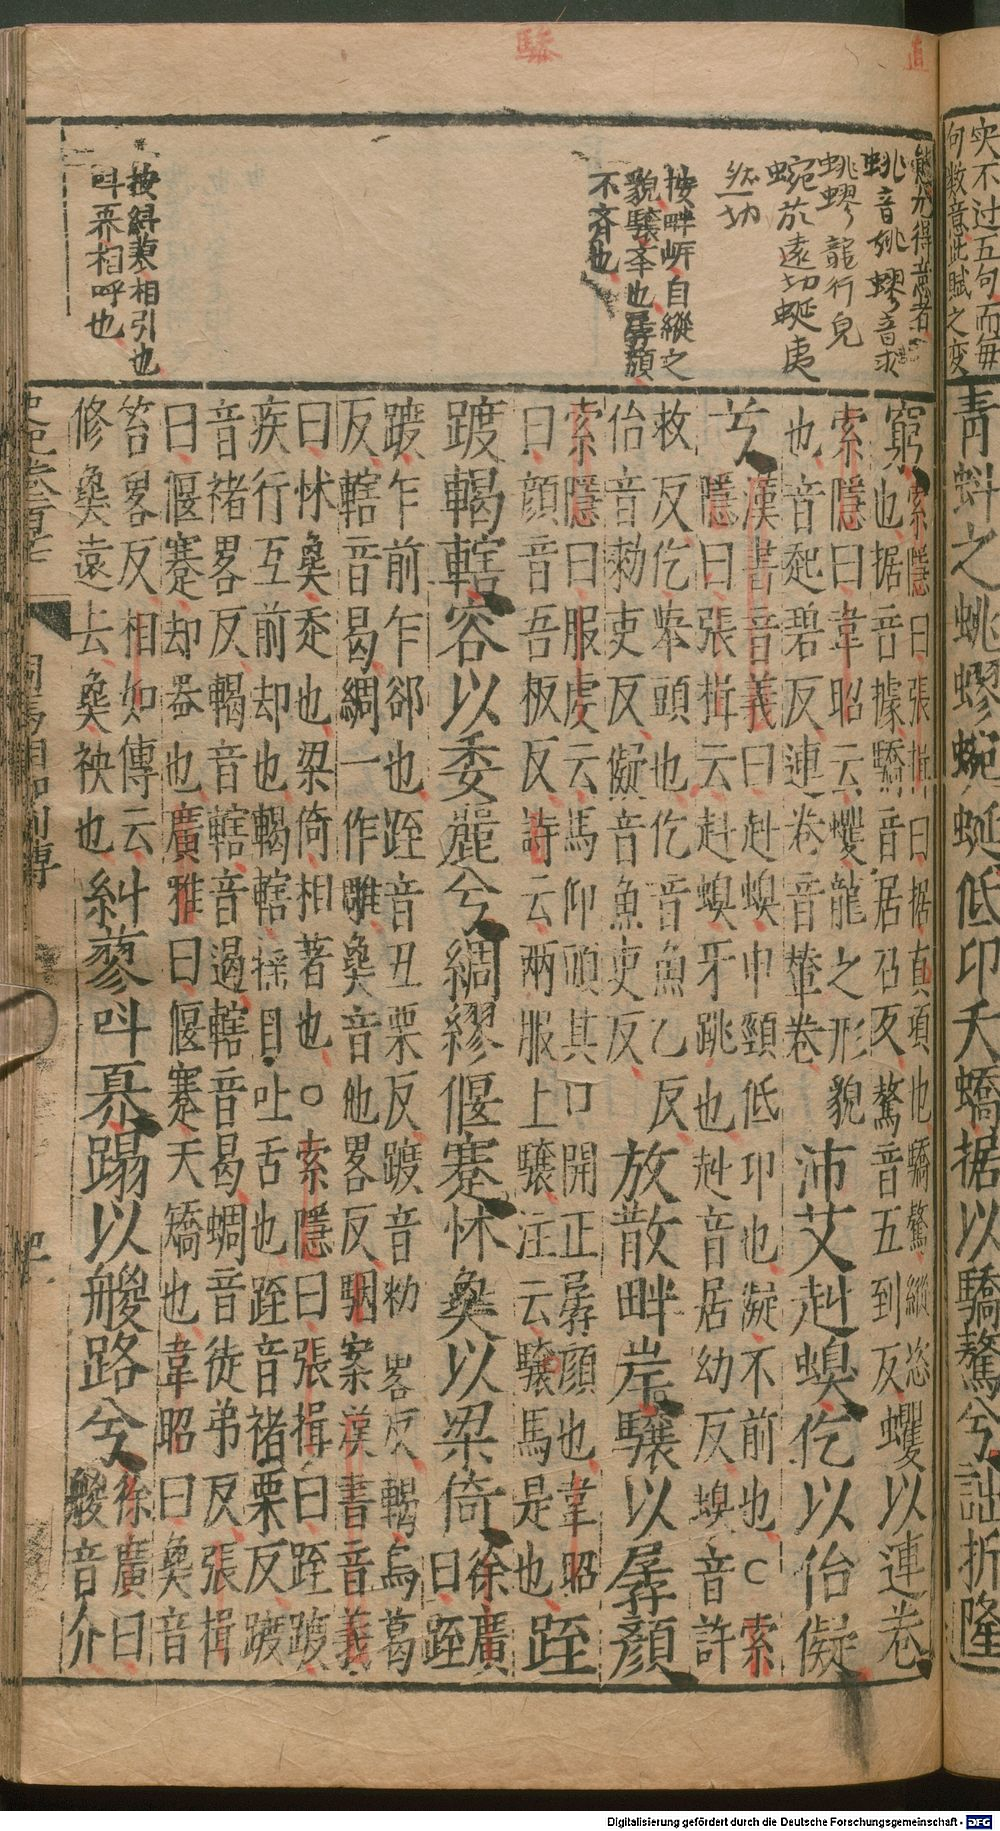 突不过五句而每
句数意此賦之变
青虯之蚴蟉蜿蜒低卬夭蟜据以驕驁兮詘折隆
窮
索隱曰張揖曰据直項也驕驁縱恣
也据音據驕音居召反驁音五到反
蠼以連卷
索隱曰韋昭云蠼龍之形貌
也音起碧反連卷音輦卷
沛艾赳螑仡以佁儗
兮
漢書音義曰赳螑申頸低卬也儗不前也○索
隱曰張揖云赳螑牙跳也赳音居幼反螑音許
救反仡舉頭也仡音魚乙反
佁音勑吏反儗音魚吏反
放散畔岸驤以孱顏
索隱曰服虔云馬仰頭其口開正孱顏也韋昭
曰顏音吾板反詩云兩服上驤注云驤馬是也
跮
踱輵轄容以委麗兮綢繆偃蹇怵㚟以梁倚
徐廣
曰跮
踱乍前乍郤也跮音丑栗反踱音勑略反輵烏葛
反轄音曷綢一作雕㚟音他畧反駰案漢書音義
曰怵㚟走也梁倚相著也○索隱曰張揖曰跮踱
疾行互前却也輵轄搖目吐舌也跮音褚栗反踱
音褚畧反輵音轄音遏轄音曷蜩音徒弟反張揖
曰偃蹇却器也廣雅曰偃蹇夭矯也韋昭曰㚟音
笞畧反相如傳云
修㚟遠去㚟袂也
糾蓼叫奡蹋以艐路兮
徐廣曰
艐音介
直
驂
能允得意者
蛐音幼蟉音求
蚴蟉龍行皃
蜿於遠切蜒夷
然切
按畔岸自縱之
貌驤举也孱顏
不齐也
按糾蓼相引也
叫奡相呼也
司馬相如列傳
Digitalisierung gefördert durch die Deutsche Forschungsgemeinschaft - DFG